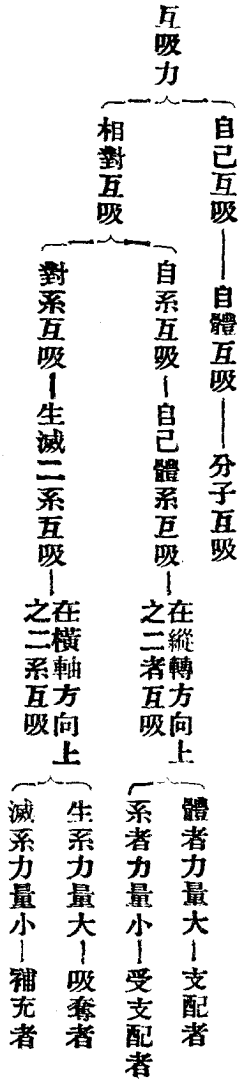 互吸力
自己互吸——自體互吸——分子互吸
相對互吸
自系互吸—自己體系互吸—在縱轉方向上
之二者互吸
體者力量大—支配者
系者力量小—受支配者
對系互吸—生滅二系互吸—在橫軸方向上
之二系互吸
生系力量大—吸奪者
滅系力量小—補充者